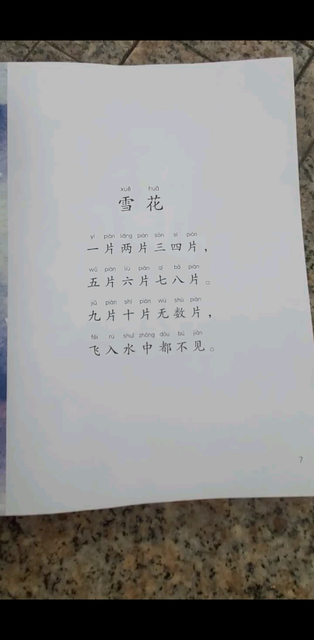 xuě huā
雪花
yí piàn liǎng piàn sān sì piàn
一片两片三四片，
wǔ piàn liù piàn qī bā piàn
五片六片七八片。
jiǔ piàn shí piàn wú shù piàn
九片十片无数片，
fēi rù shuǐ zhōng dōu bú jiàn
飞入水中都不见。
7